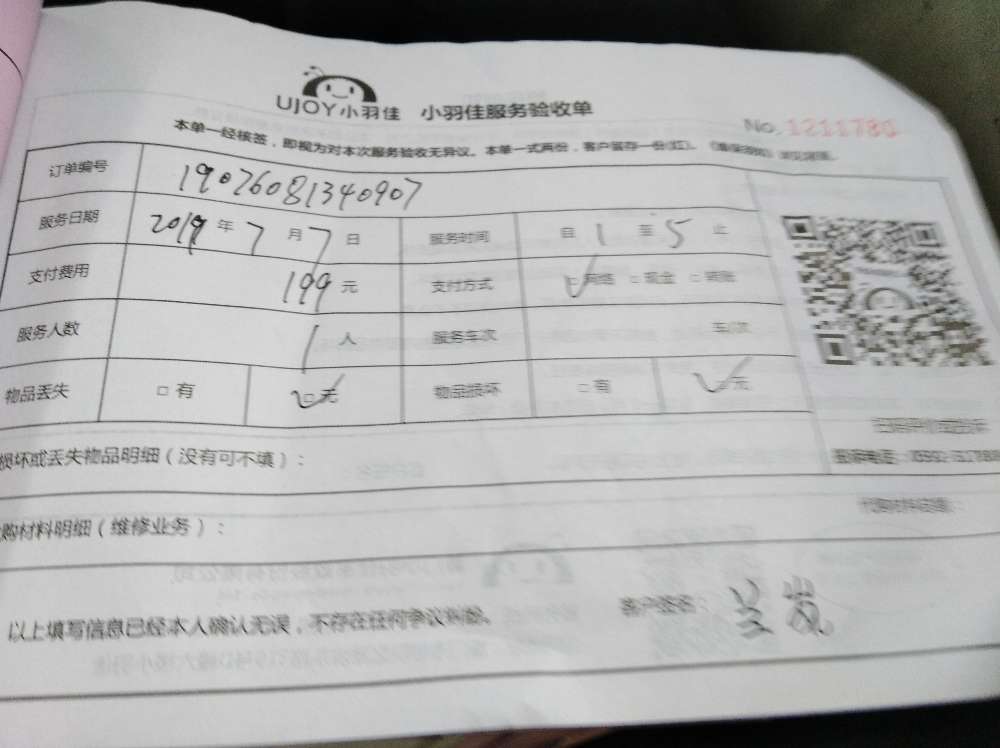 UJOY小羽佳 小羽佳服务验收单
No. 1211780
本单一经核签，即视为对本次服务验收无异议。本单一式两份，客户留存一份(红)。
订单编号 19076081340907
服务日期 2019 年 7 月 7 日 服务时间 自 1 至 5 止
支付费用 199 元 支付方式 □网络 □现金 □转账
服务人数 1 人 服务车次 车/次
物品丢失 □有 □无 物品损坏 □有 □无
损坏或丢失物品明细（没有可不填）：
购材料明细（维修业务）：
以上填写信息已经本人确认无误，不存在任何争议纠纷。 客户签名：